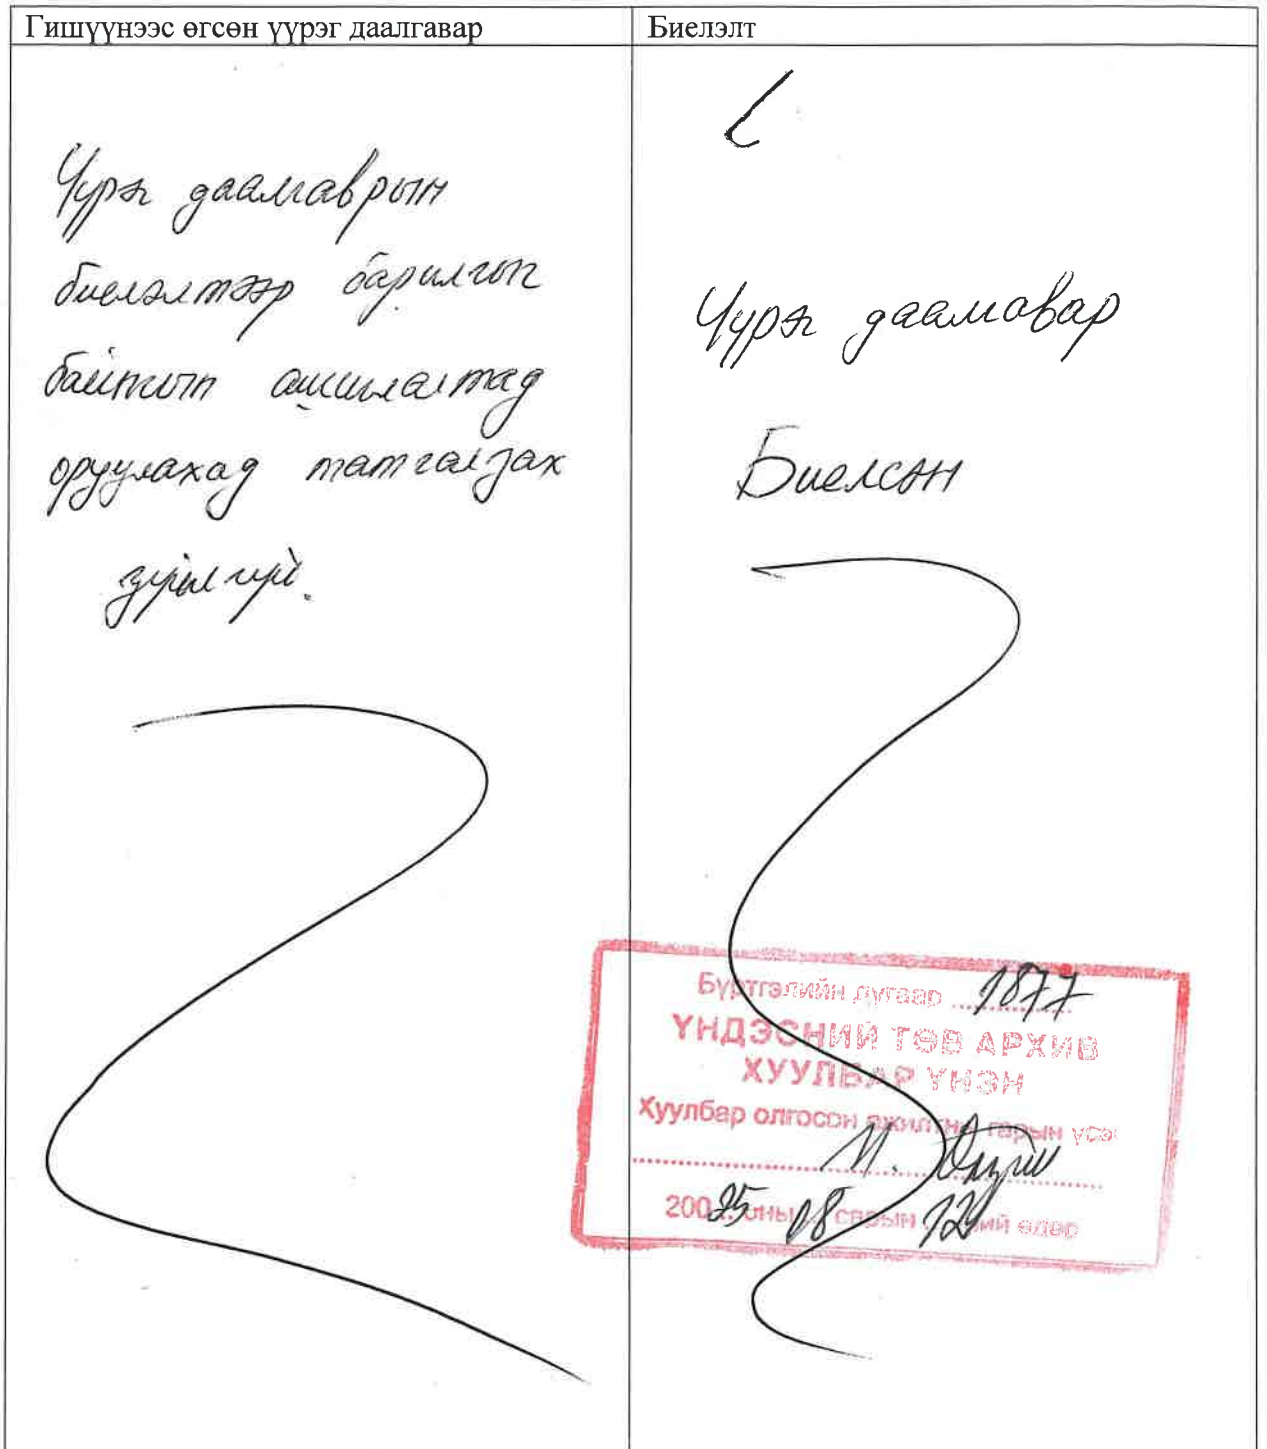 Гишүүнээс өгсөн үүрэг даалгавар
Үүрэг даалгаврын
биелэлтээр барилгын
байнгын ашиглалтад
оруулахад татгалзах
зүйлгүй.
Биелэлт
Үүрэг даалгавар
Биелсэн
Бүртгэлийн дугаар 1877
ҮНДЭСНИЙ ТӨВ АРХИВ
ХУУЛБАР ҮНЭН
Хуулбар олгосон ажилтны гарын үсэг
М.
200 25 оны 08 сарын 12 ний өдөр